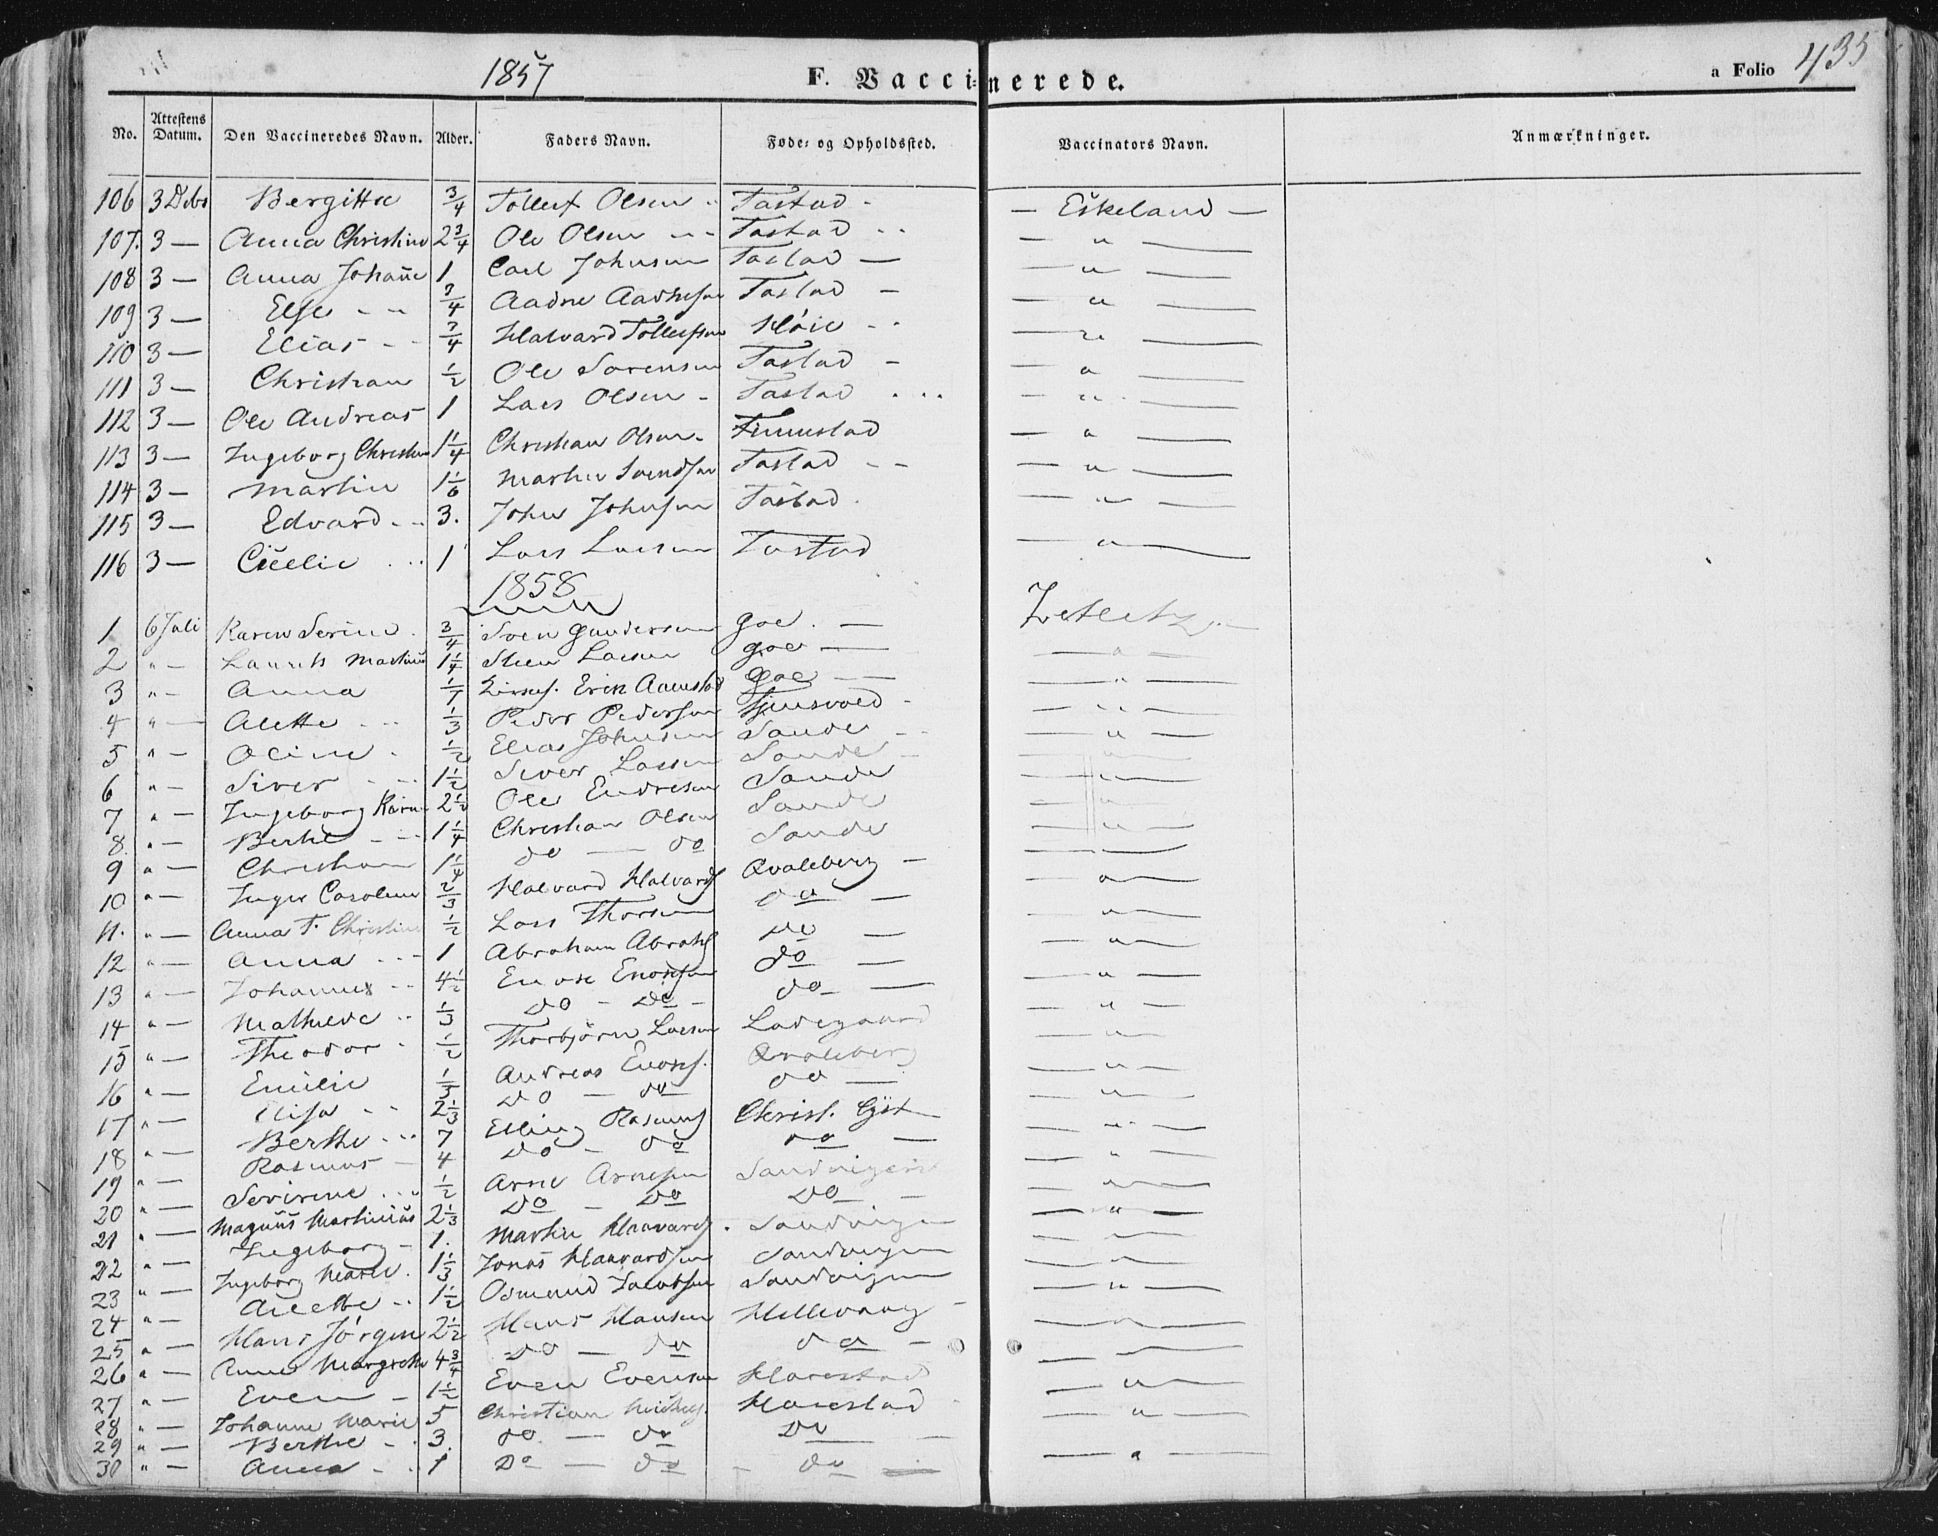 1857 F. Vaccinerede. a Folio 435
No. Attestens Datum. Den Vaccineredes Navn. Alder. Faders Navn. Føde- og Opholdssted. Vaccinators Navn. Anmærkninger.
106 3 Debr Bergitte 3/4 Tollef Olsen Tastad - Eskeland -
107. 3 - Anna Christine 2 3/4 Ole Olsen Tastad - " -
108 3 - Anna Johañe 1 Carl Johnsen Tastad - " -
109 3 - Else 3/4 Aadne Aadnesen Tastad - " -
110 3 - Elias 3/4 Halvard Tollefsen Høie - " -
111 3 - Christian 1/2 Ole Sørensen Tastad - " -
112 3 - Ole Andreas 1 Lars Olsen Tastad - " -
113 3 - Ingeborg Christine 1 1/4 Christian Olsen Finnestad - " -
114 3 - Martin 1 1/6 Martin Svendsen Tastad - " -
115 3 - Edvard 3. John Johnsen Tastad - " -
116 3 - Cecilie 1 Lars Larsen Tastad - " -
1858
1 6 Juli Karen Serine 3/4 Sven Gundersen Goe Zetlitz
2 " - Laurits Martinus 1 1/4 Steen Larsen Goe - " -
3 " - Anna Erik Goe - " -
4 " - Alette 1/3 Peder Pedersen - " -
5 " - Oline 1/2 Elias Johnsen Sande - " -
6 " - Siver 1 1/2 Siver Larsen Sande - " -
7 " - Ingeborg Karine 2 1/2 Ole Endresen Sande - " -
8. " - Berthe 1 1/4 Christian Olsen Sande - " -
9 " - Christian 1 1/4 do - do Sande - " -
10 " - Inger Caroline 2/3 Halvard Halvards Qvaleberg - " -
11. " - Anna T. Christine 1/2 Lars Thorsen do - " -
12 " - Anna 1 Abraham Abrahs do - " -
13 " - Johannes 4 1/2 Enok Enoksen do - " -
14 " - Mathilde 1/3 do - do do - " -
15 " - Theodor 1/2 Thorbjørn Larsen Ladegaard - " -
16 " - Emilie 1/3 Andreas Enoks. Qvaleberg - " -
17 " - Elisa 2 1/3 do - do do - " -
18 " - Berthe 7 Elling Rasmuss Christ. Gjst - " -
19 " - Rasmus 4 do - do do - " -
20 " - Severine 1/2 Arne Arnesen Sandvigen - " -
21 " - Magnus Martinius 2 1/3 do - do do - " -
22 " - Ingeborg 1. Martin Haavards. Sandvigen - " -
23 " - Ingeborg Marie. 1 1/3 Jonas Haavardsen Sandvigen - " -
24 " - Alette 1 1/2 Osmund Jacobsen Sandvigen - " -
25 " - Hans Jørgen 2 1/2 Hans Hansen Hillevaag
26 " - Anne Margrethe 4 3/4 do - do do
27 " - Even 1 1/2 Even Evensen Harestad - " -
28 " - Johanne Marie 5 Christian Harestad - " -
29 " - Berthe 3. do - do do
30 " - Anna 1 do - do do - " -